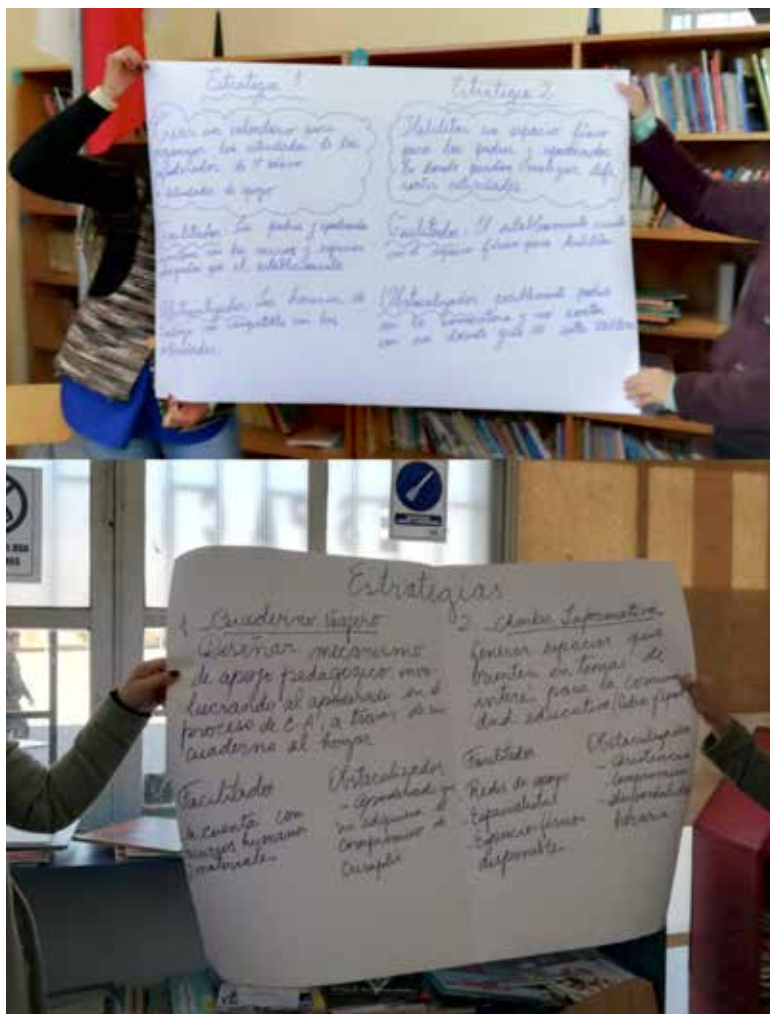 Estrategia 1
Crear un calendario para
las actividades de los
apoderados de 1º básico
actividades de apoyo
Facilitador: Los padres y apoderados
cuentan con los recursos y espacios
que el establecimiento
Obstaculizador: Los horarios de
trabajo no compatible con las
actividades.
Estrategia 2
Habilitar un espacio físico
para los padres y apoderados
En donde puedan realizar dife
rentes actividades
Facilitador: El establecimiento cuenta
con el espacio físico para habilitar
Obstaculizador: posiblemente padres
no lo y no contar
con un docente guía de este
Estrategias
1 Cuaderno Viajero
Diseñar mecanismo
de apoyo pedagógico, invo
lucrando al apoderado en el
proceso de E-A, a través de un
cuaderno al hogar
Facilitador
Se cuenta con
recursos humanos
materiales
Obstaculizador
- Apoderado que
no adquiera el
compromiso de
cumplir
2 Charlas Informativas
Generar espacios que
orienten en temas de
interés para la comuni
dad educativa
Facilitador
Redes de apoyo
Especialistas
Espacio físico
disponible
Obstaculizador
- asistencia
- compromiso
- disponibilidad
horaria